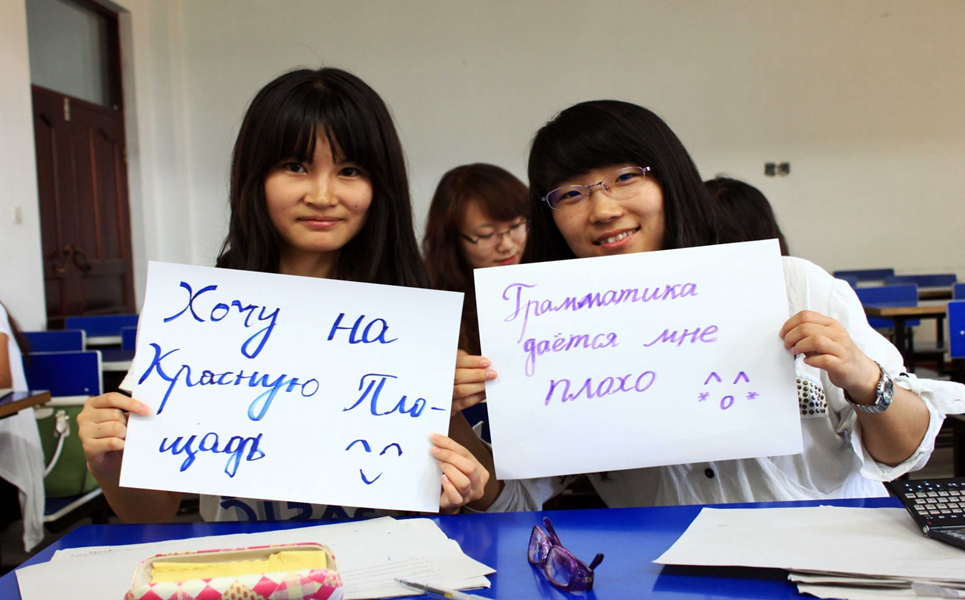 Хочу на
Красную Пло-
щадь ^ ^
Грамматика
даётся мне
плохо ^ ^
* o *